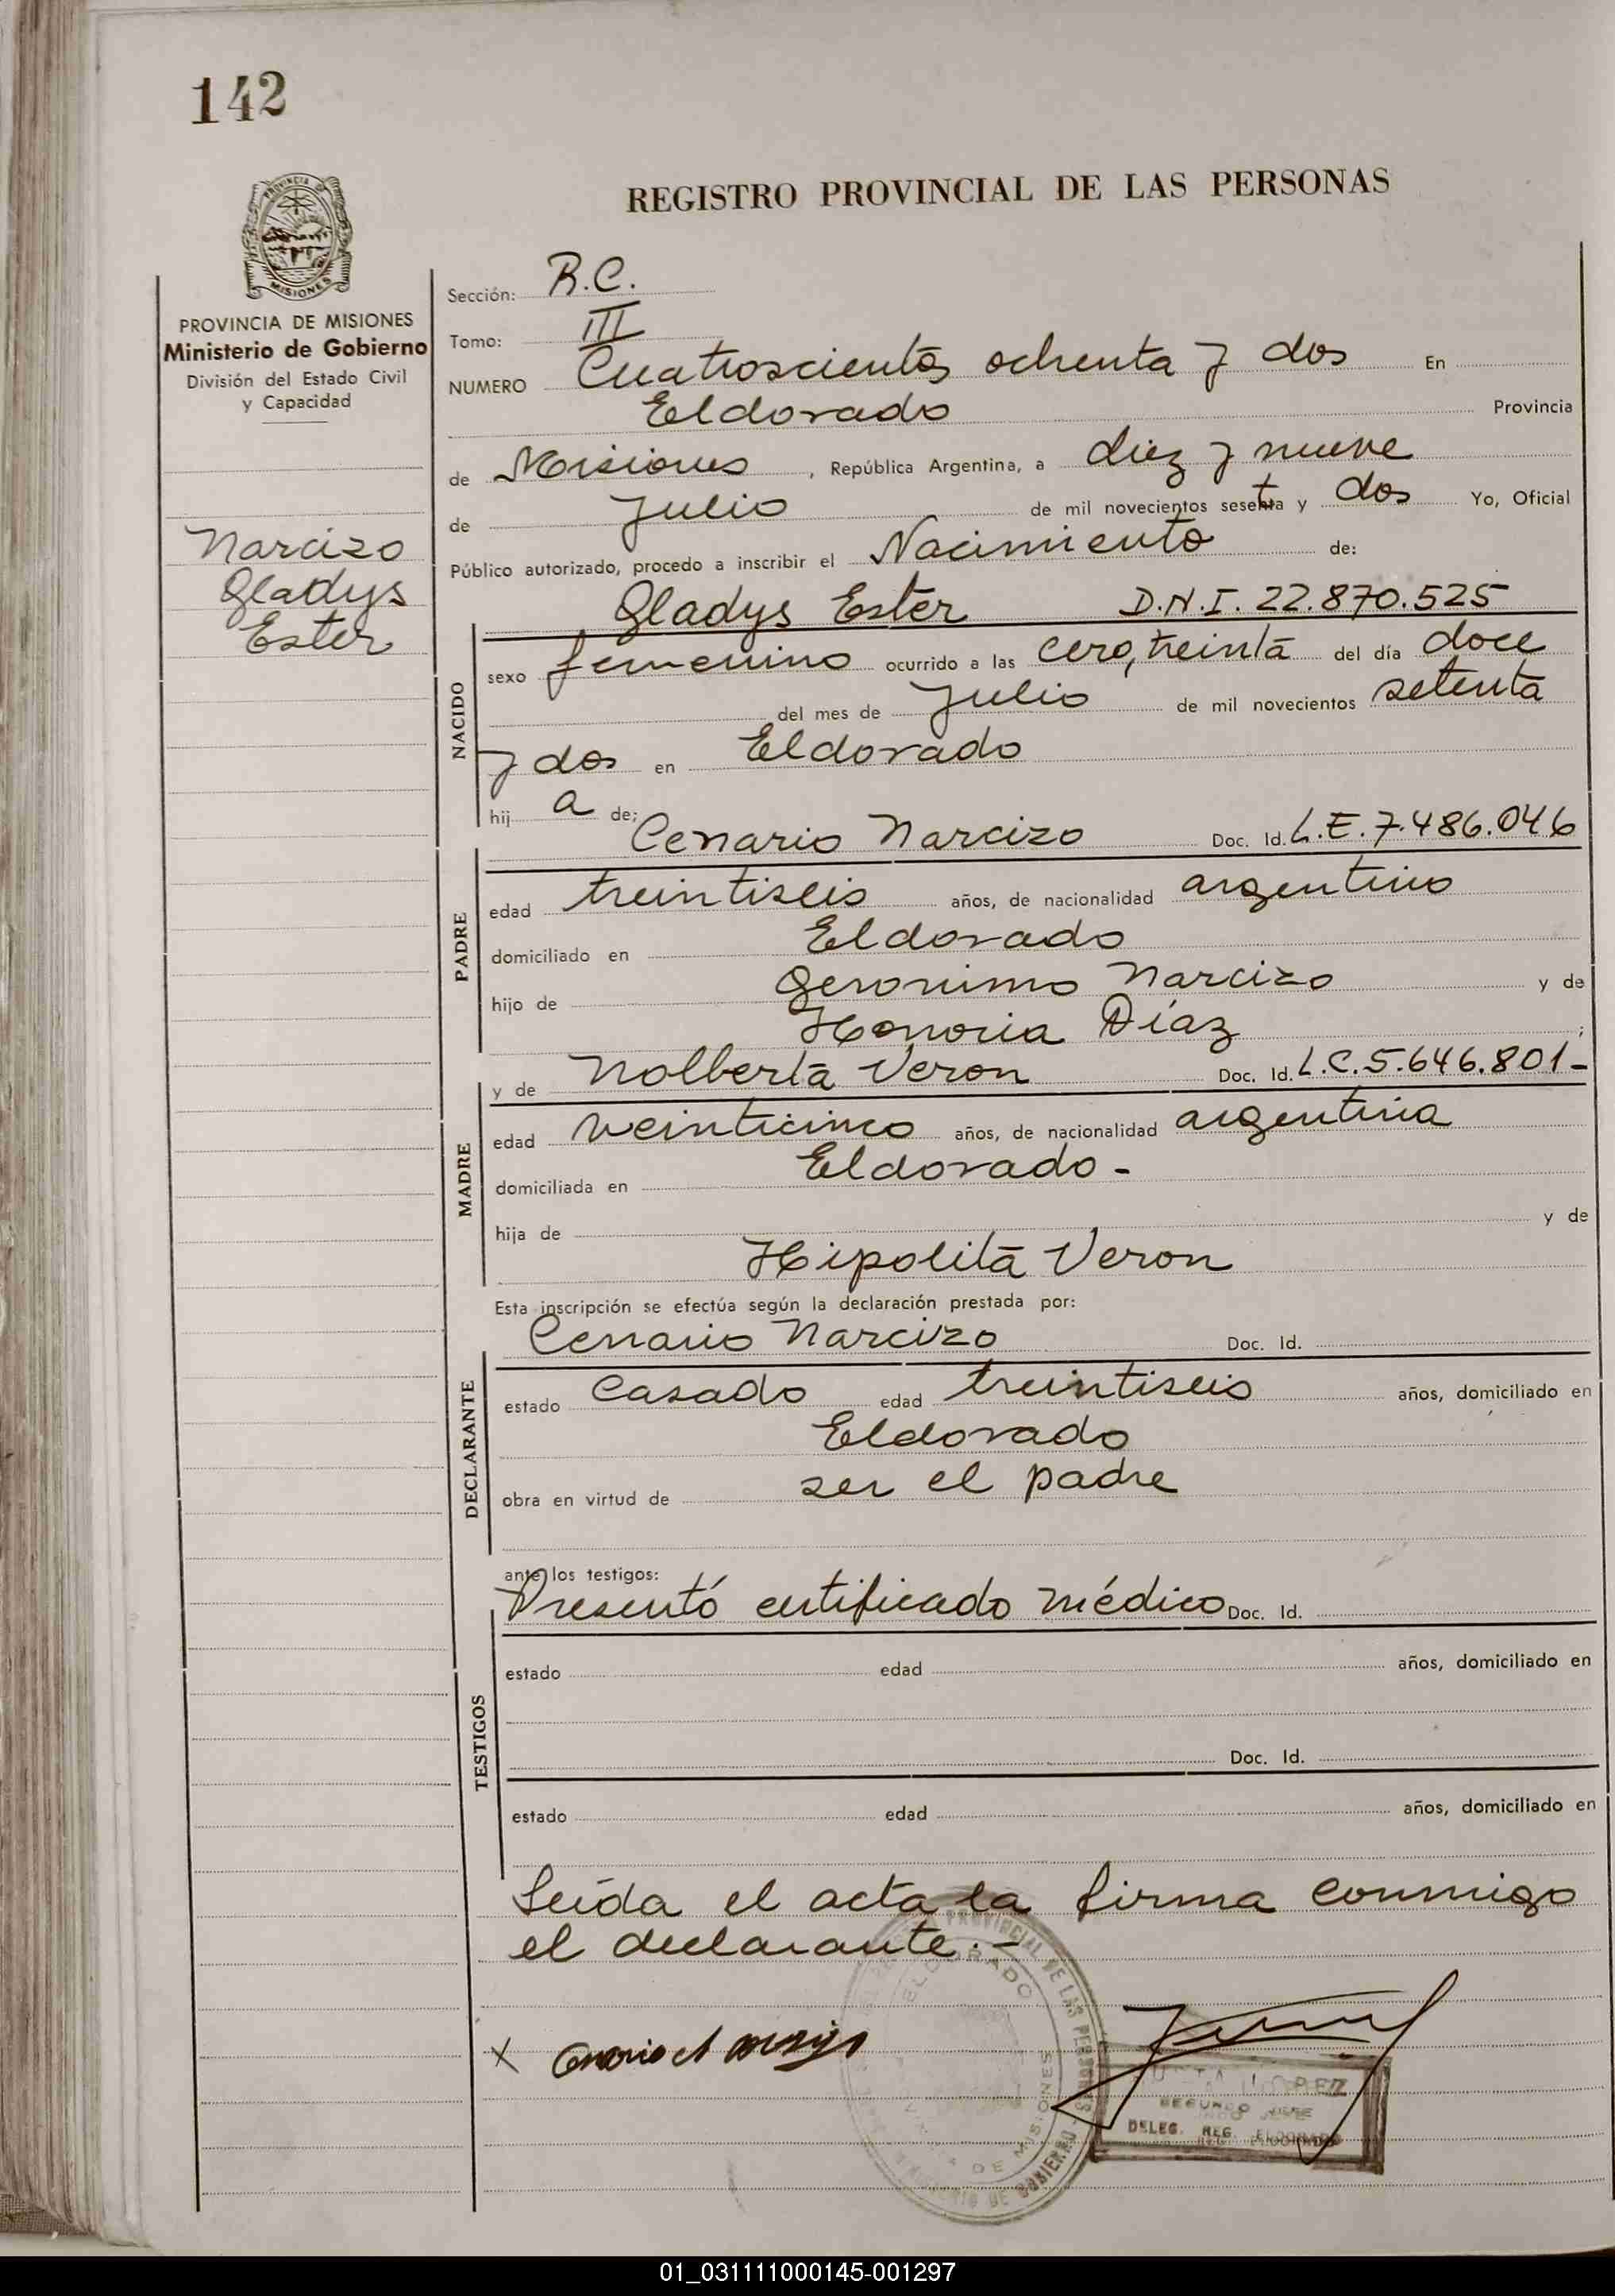 142
PROVINCIA DE MISIONES
MISIONES
PROVINCIA DE MISIONES
Ministerio de Gobierno
División del Estado Civil
y Capacidad
Narcizo
Gladys
Ester
REGISTRO PROVINCIAL DE LAS PERSONAS
Sección: R.C.
Tomo: III
NUMERO Cuatroscientos ochenta y dos En
Eldorado Provincia
de Misiones, República Argentina, a diez y nueve
de Julio de mil novecientos setenta y dos Yo, Oficial
Público autorizado, procedo a inscribir el Nacimiento de:
Gladys Ester D.N.I. 22.870.525
NACIDO
sexo femenino ocurrido a las cero, treinta del día doce
del mes de Julio de mil novecientos setenta
y dos en Eldorado
hij a de:
Cenario Narcizo Doc. Id. L.E. 7.486.046
PADRE
edad treintiseis años, de nacionalidad argentino
domiciliado en Eldorado
hijo de Geronimo Narcizo y de
Honoria Díaz ;
y de Nolberta Veron Doc. Id. L.C. 5.646.801-
MADRE
edad veinticinco años, de nacionalidad argentina
domiciliada en Eldorado-
hija de y de
Hipolita Veron
Esta inscripción se efectúa según la declaración prestada por:
Cenario Narcizo Doc. Id.
DECLARANTE
estado Casado edad treintiseis años, domiciliado en
Eldorado
obra en virtud de ser el padre
ante los testigos:
Presentó certificado médico Doc. Id.
TESTIGOS
estado edad años, domiciliado en
Doc. Id.
estado edad años, domiciliado en
Leída el acta la firma conmigo
el declarante.-
PROVINCIAL DE LAS PERSONAS
ELDORADO
DE MISIONES
DE GOBIERNO
X
LOPEZ
SEGUNDO JEFE
DELEG. REG. ELDORADO
01_031111000145-001297